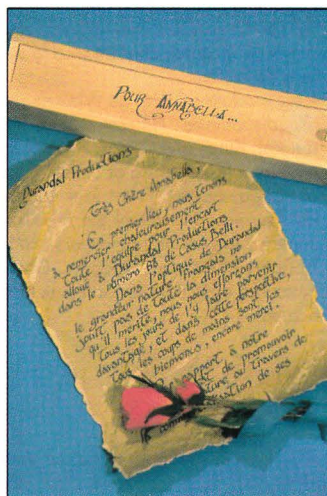 POUR ANNABELLA...
Durandal Productions
Très Chère Annabella,
En premier lieu, nous tenons
à remercier chaleureusement
toute l'équipe pour l'encart
alloué à Durandal Productions
dans le numéro 68 de Casus Belli.
Dans l'optique de Durandal
le grandeur nature français ne
jouit pas de toute la dimension
qu'il mérite, nous nous efforçons
tous les jours de l'y faire parvenir
davantage, et dans cette perspective,
tous les coups de mains sont les
bienvenus, encore merci.
rapport à notre
de promouvoir
nature au travers de
la comm
ation de ses